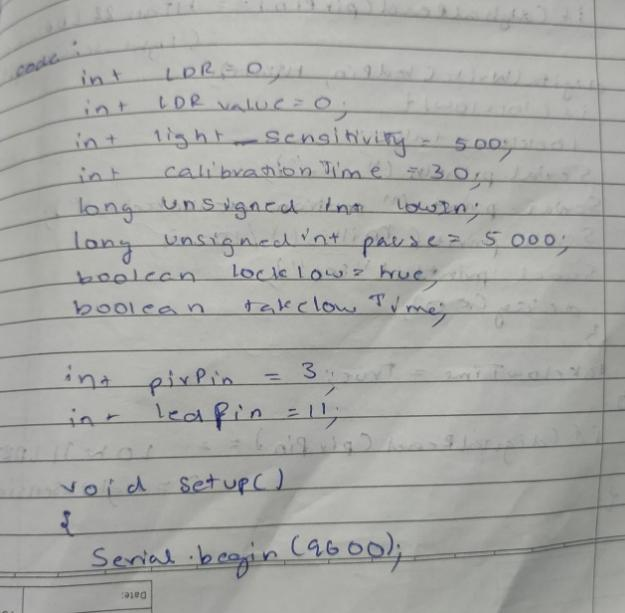 code:
int LDR = 0;
int LDR value = 0;
int light_sensitivity = 500;
int calibration Time = 30;
long unsigned int lowIn;
long unsigned int pause = 5000;
boolean lock low = true;
boolean take low Time;
int pirPin = 3;
int led Pin = 11;
void setup()
{
Serial.begin (9600);
Date: